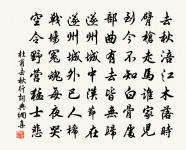 去秋涪江木落時
臂槍走馬誰家兒
到今不知白骨處
部曲有去皆無歸
遂州城中漢節在
遂州城外巴人稀
戰場冤魂每夜哭
空令野營猛士悲
杜甫去秋行詞典網書